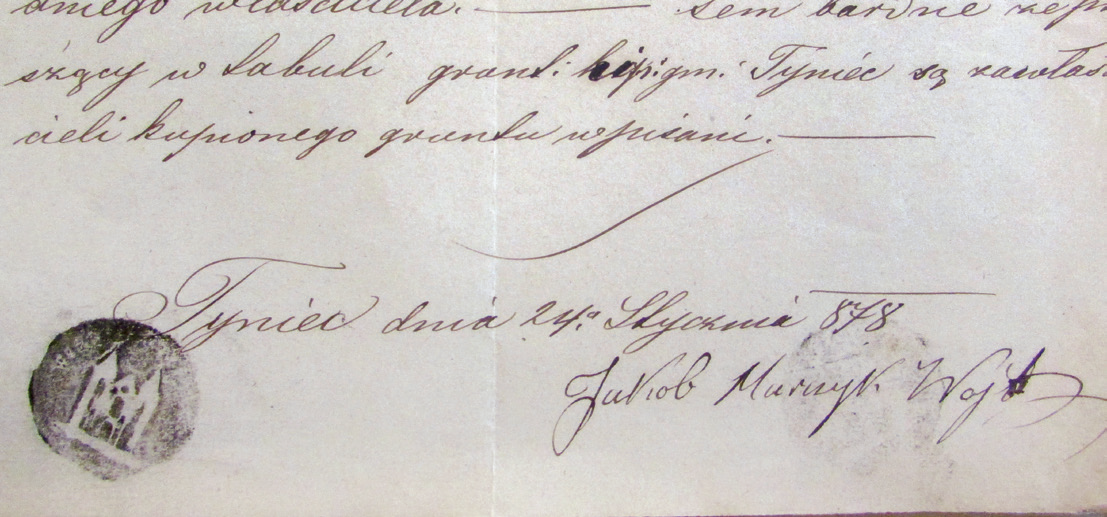 dniego właściciela. — tem bardzie
szący w tabuli grunt: hip: gm: Tyniec są za właś
cieli kupionego gruntu wpisani. —
Tyniec dnia 24º Stycznia 878
Jakób Murzyk Wojt